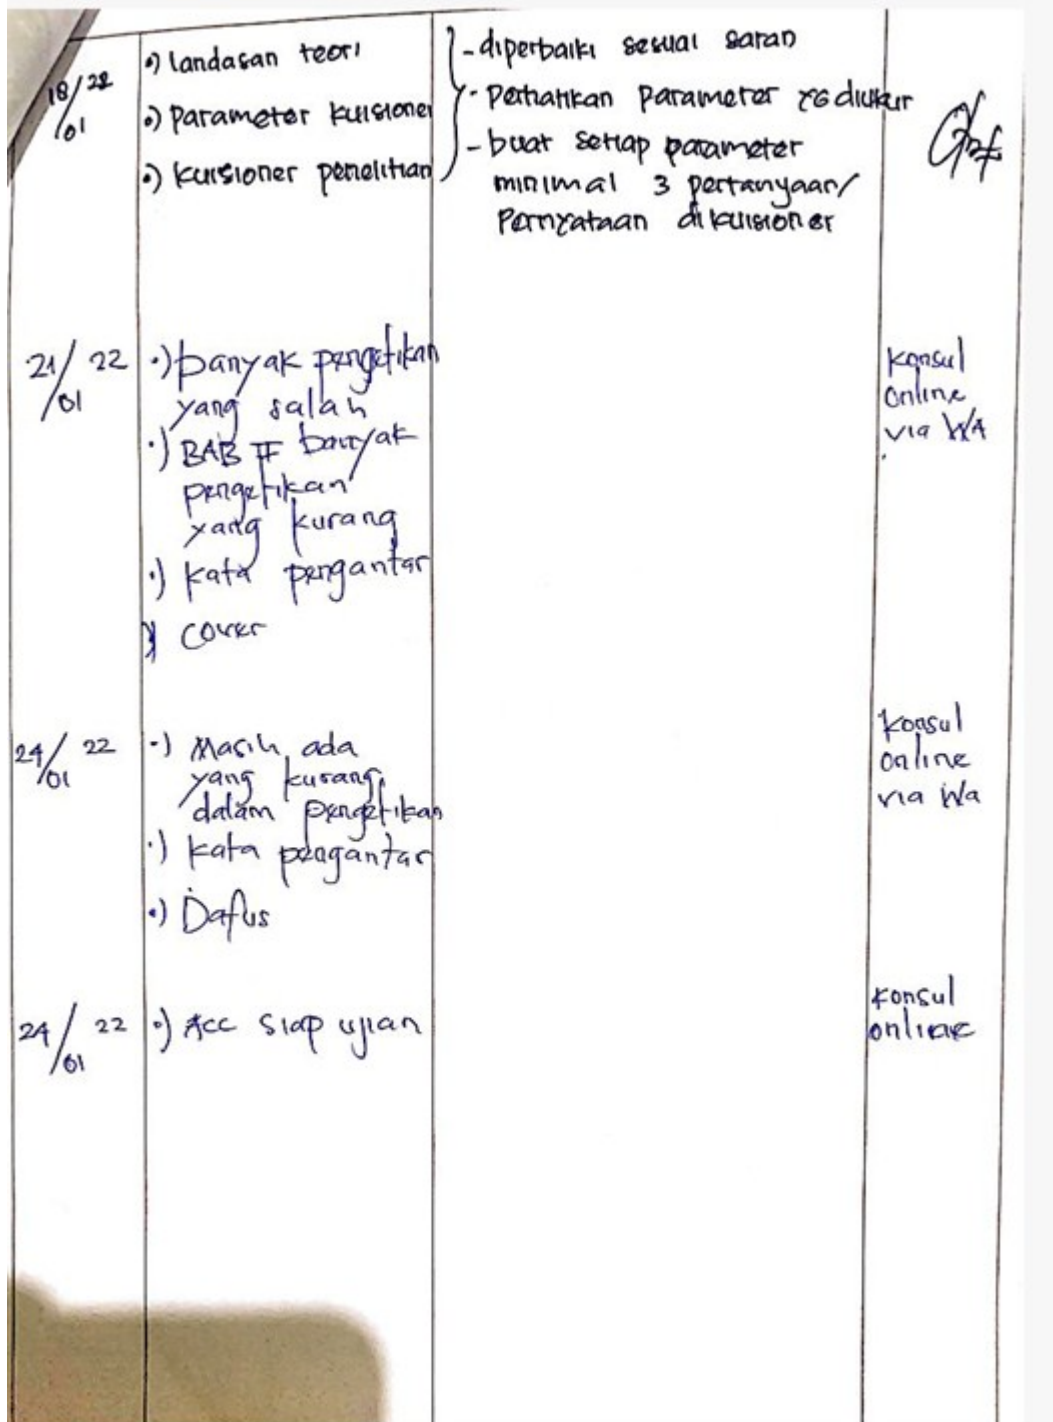 18/01 22
•) landasan teori
•) Parameter kuisioner
•) kuisioner penelitian
- diperbaiki sesuai saran
- Perhatikan parameter yg diukur
- buat setiap parameter
minimal 3 pertanyaan/
Pernyataan di kuisioner
21/01 22
•) banyak pengetikan
yang salah
•) BAB II banyak
pengetikan
yang kurang
•) kata pengantar
•) cover
konsul
online
via WA
24/01 22
•) Masih ada
yang kurang
dalam pengetikan
•) kata pengantar
•) Dafus
konsul
online
via Wa
24/01 22
•) Acc siap ujian
konsul
online